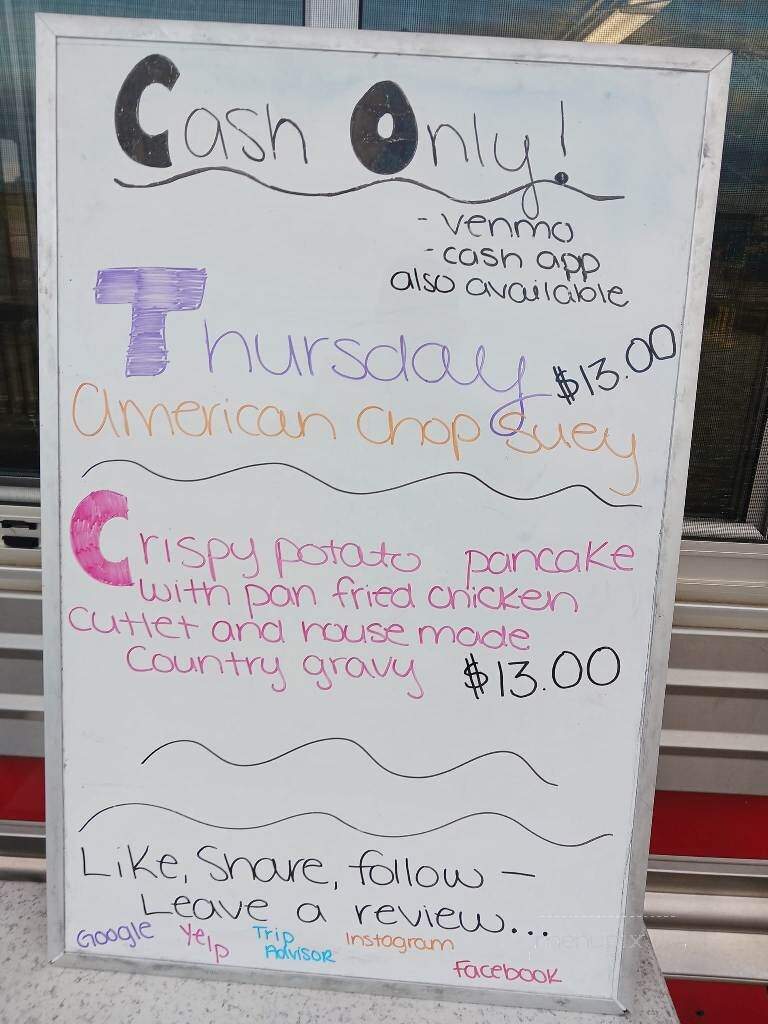 Cash Only!
- venmo
- cash app
also available
Thursday $13.00
american chop suey
Crispy potato pancake
with pan fried chicken
cutlet and house made
Country gravy $13.00
Like, Share, follow -
Leave a review...
Google Yelp Trip Advisor Instagram
Facebook
menupix